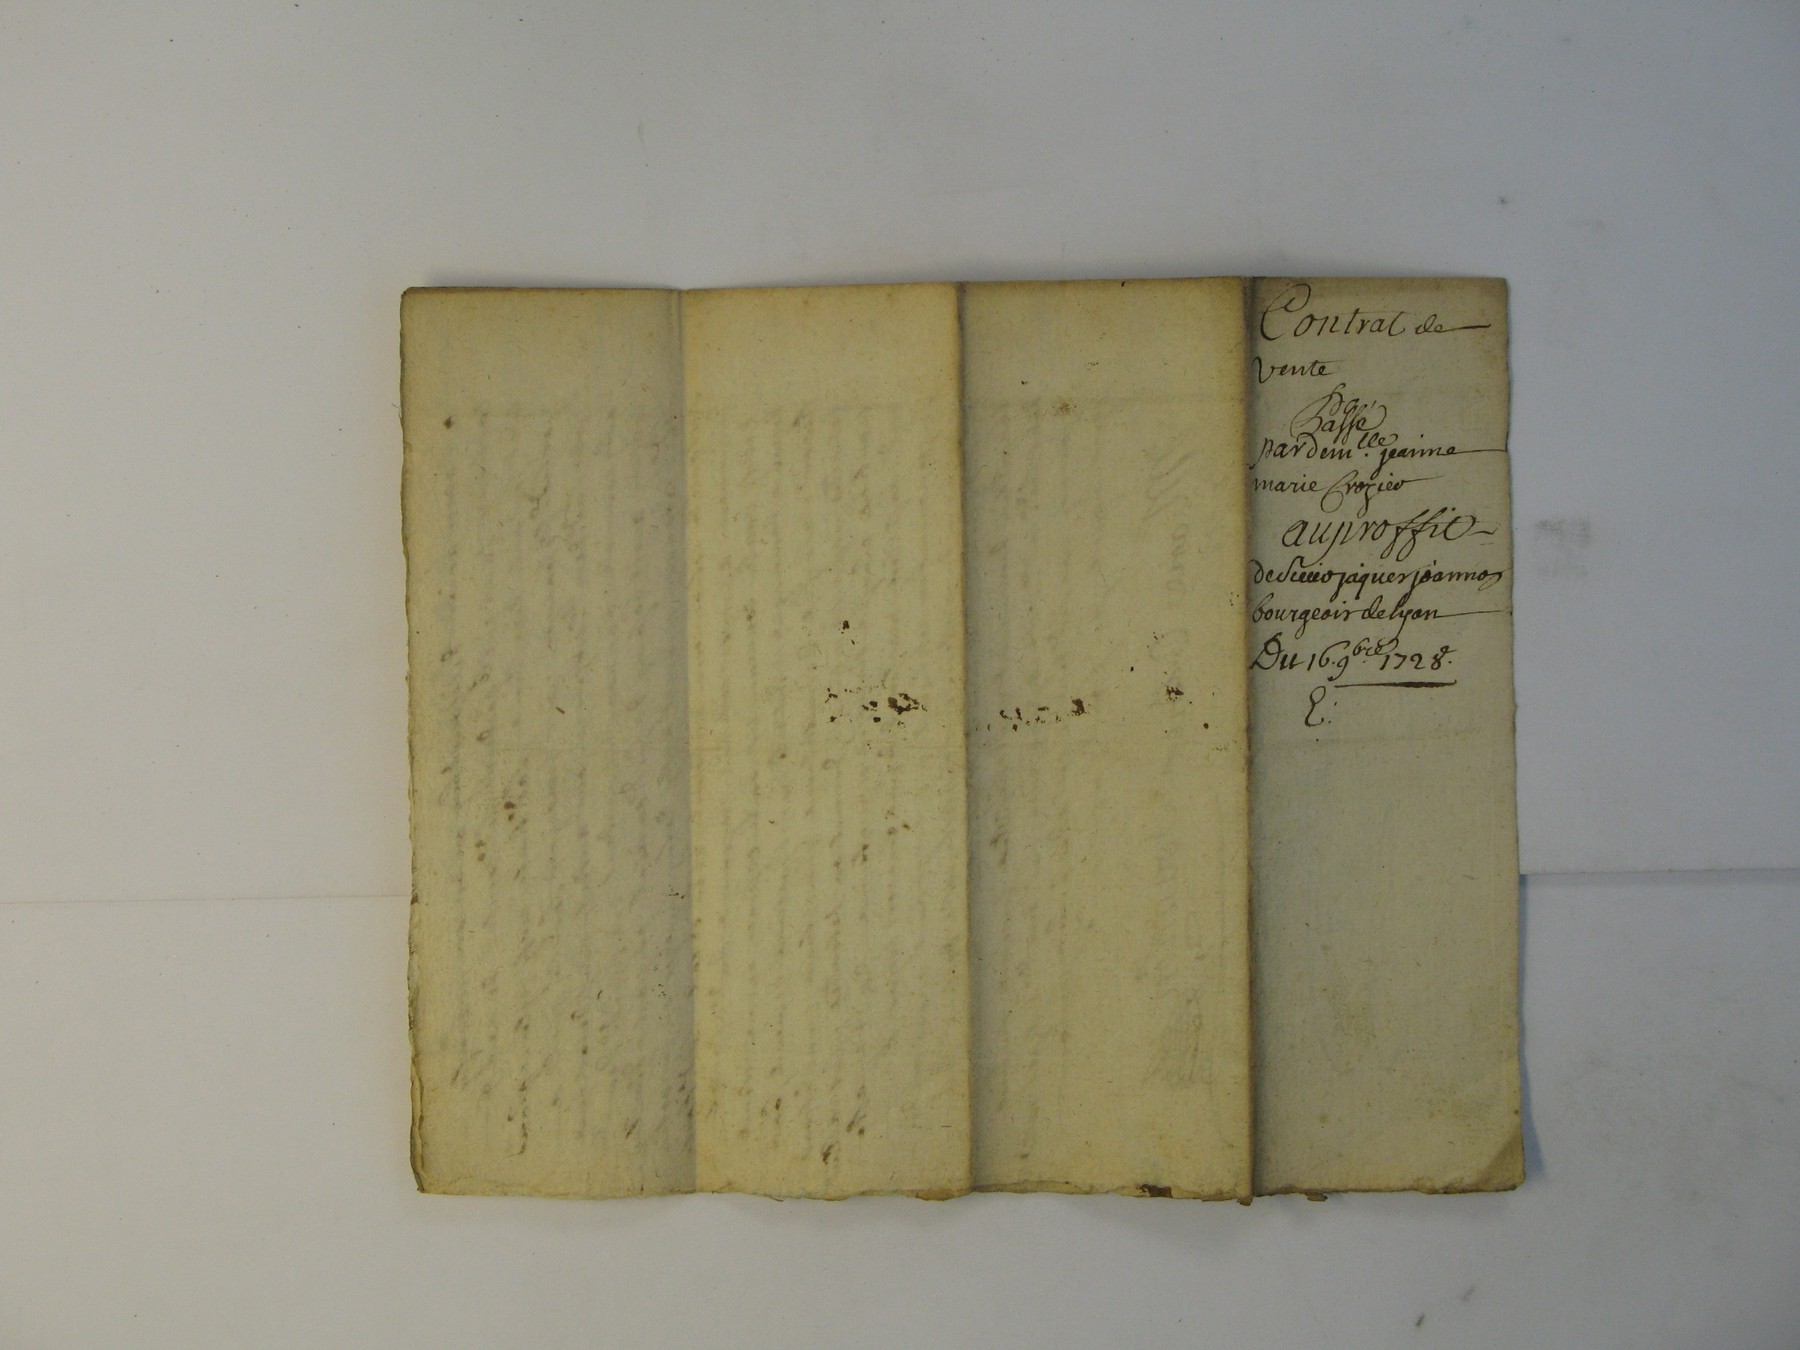 Contrat de
vente
Passé
par dem.lle jeanne
marie Crozier
au proffit
de Sieur jaques joannos
bourgeois de lyon
Du 16. 9bre 1728.